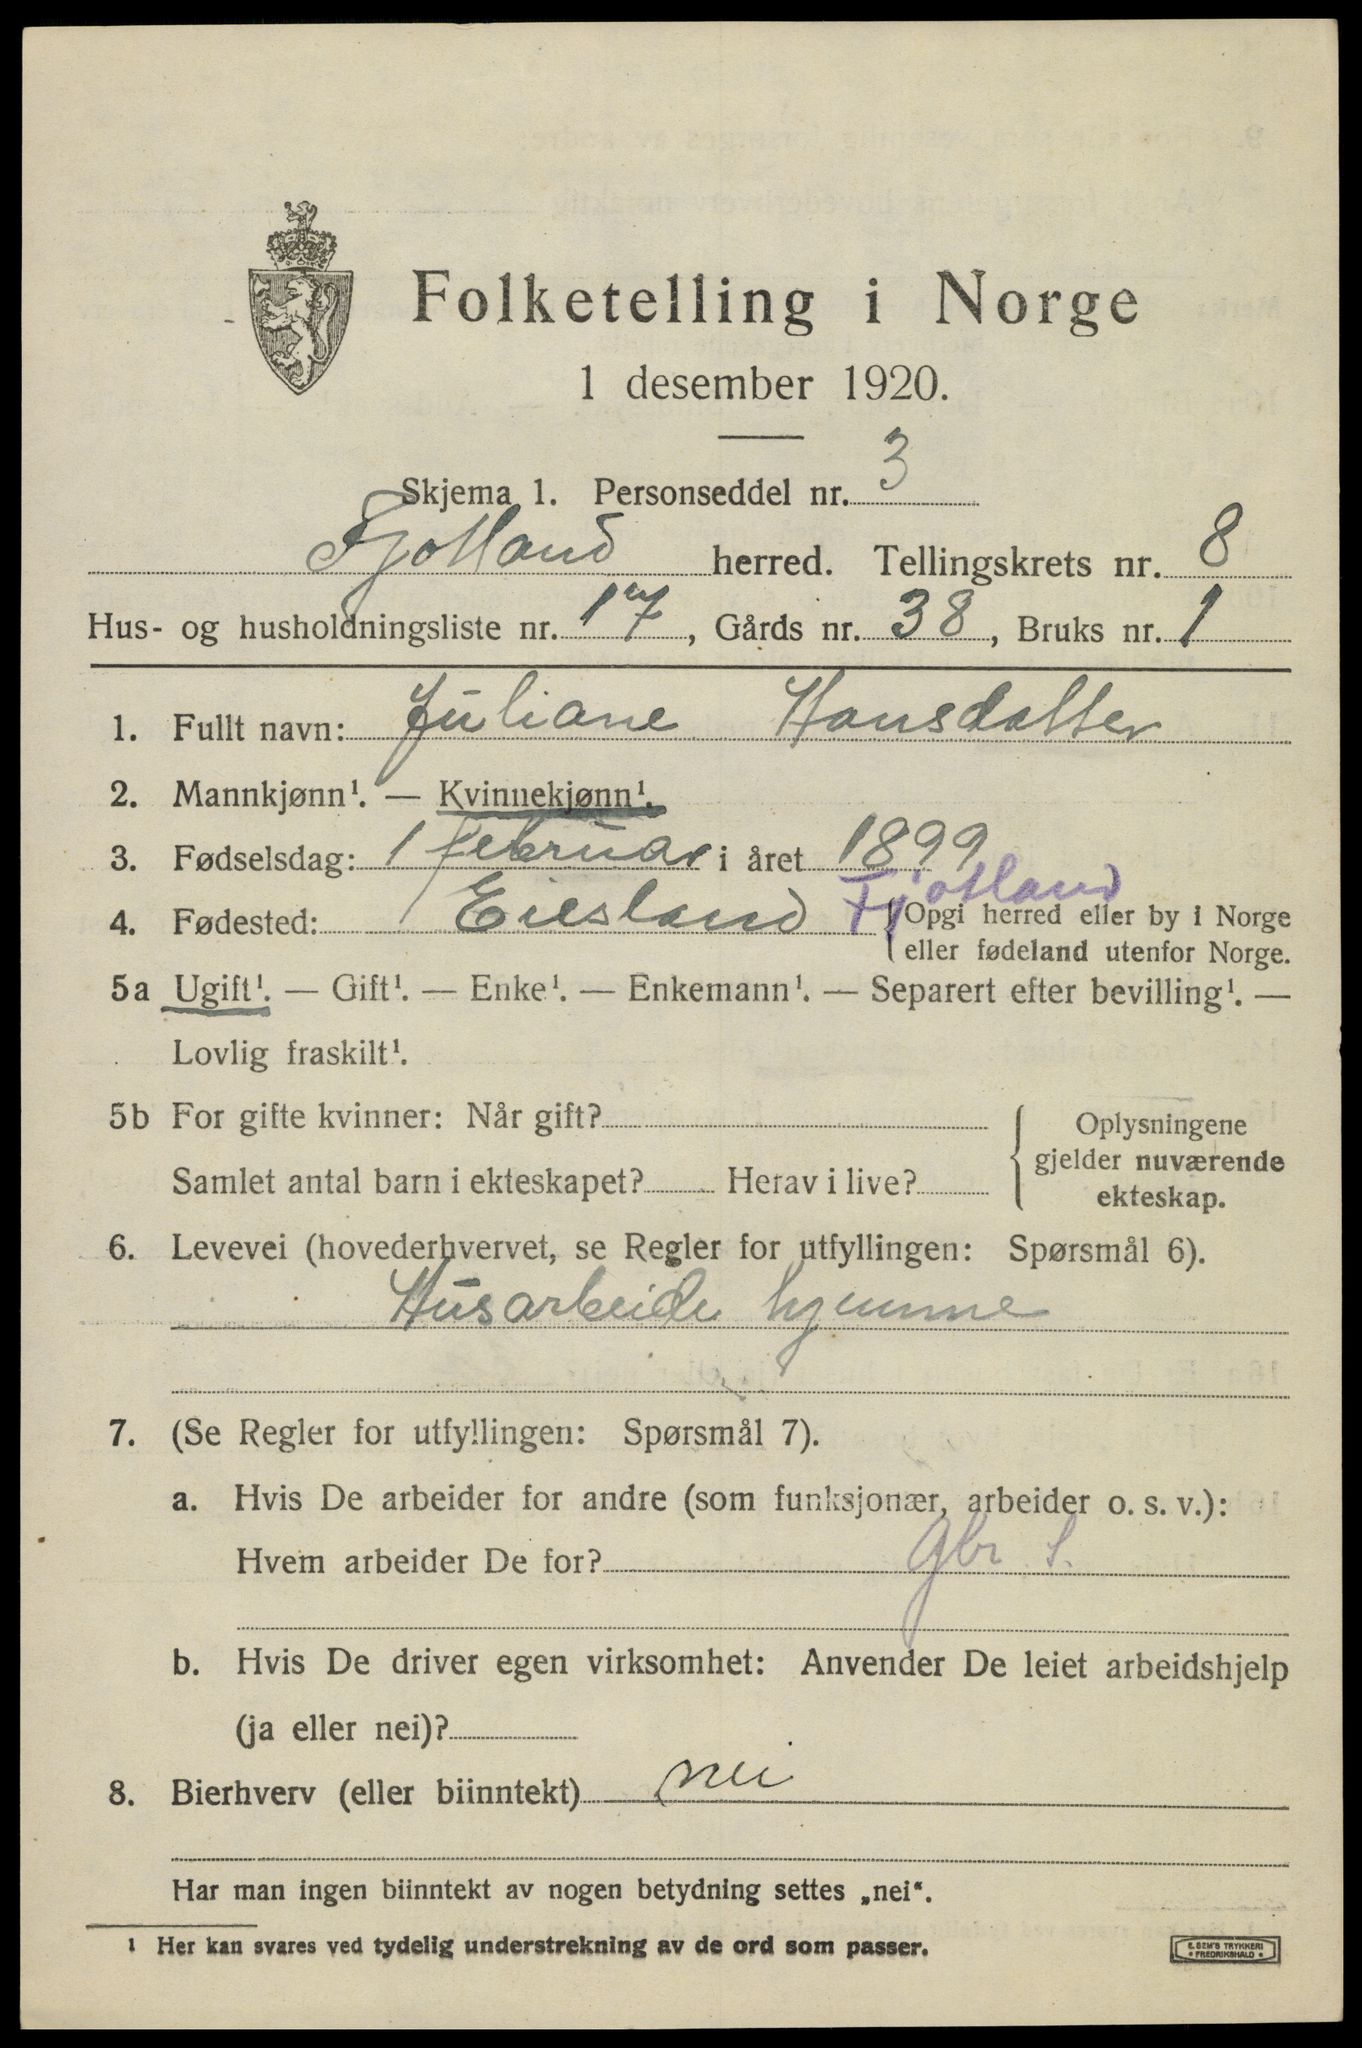 Folketelling i Norge
1 desember 1920.
Skjema 1. Personseddel nr. 3
Fjotland herred. Tellingskrets nr. 8
Hus- og husholdningsliste nr. 17, Gårds nr. 38, Bruks nr. 1
1. Fullt navn: Juliane Hansdatter
2. Mannkjønn¹. — Kvinnekjønn¹.
3. Fødselsdag: 1 februar i året 1899
4. Fødested: Eiesland Fjotland {Opgi herred eller by i Norge
eller fødeland utenfor Norge.
5a Ugift¹. — Gift¹. — Enke¹. — Enkemann¹. — Separert efter bevilling¹. —
Lovlig fraskilt¹.
5b For gifte kvinner: Når gift?
Samlet antal barn i ekteskapet? Herav i live?
Oplysningene
gjelder nuværende
ekteskap.
6. Levevei (hovederhvervet, se Regler for utfyllingen: Spørsmål 6).
Husarbeide hjemme
7. (Se Regler for utfyllingen: Spørsmål 7).
a. Hvis De arbeider for andre (som funksjonær, arbeider o. s. v.):
Hvem arbeider De for? Gbr
b. Hvis De driver egen virksomhet: Anvender De leiet arbeidshjelp
(ja eller nei)?
8. Bierhverv (eller biinntekt) nei
Har man ingen biinntekt av nogen betydning settes „nei“.
¹ Her kan svares ved tydelig understrekning av de ord som passer.
E. SEM'S TRYKKERI
• FREDRIKSHALD •